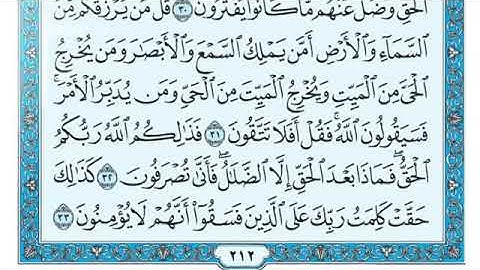 الْحَقِّ وَضَلَّ عَنْهُم مَّا كَانُوا۟ يَفْتَرُونَ ٣٠ قُلْ مَن يَرْزُقُكُم مِّنَ
السَّمَآءِ وَالْأَرْضِ أَمَّن يَمْلِكُ السَّمْعَ وَالْأَبْصَٰرَ وَمَن يُخْرِجُ
الْحَىَّ مِنَ الْمَيِّتِ وَيُخْرِجُ الْمَيِّتَ مِنَ الْحَىِّ وَمَن يُدَبِّرُ الْأَمْرَ ۚ
فَسَيَقُولُونَ اللَّهُ ۚ فَقُلْ أَفَلَا تَتَّقُونَ ٣١ فَذَٰلِكُمُ اللَّهُ رَبُّكُمُ
الْحَقُّ ۖ فَمَاذَا بَعْدَ الْحَقِّ إِلَّا الضَّلَٰلُ ۖ فَأَنَّىٰ تُصْرَفُونَ ٣٢ كَذَٰلِكَ
حَقَّتْ كَلِمَتُ رَبِّكَ عَلَى الَّذِينَ فَسَقُوٓا۟ أَنَّهُمْ لَا يُؤْمِنُونَ ٣٣
٢١٢